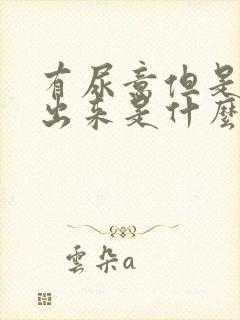 有尿意但是
出来是什麼
雲朵a